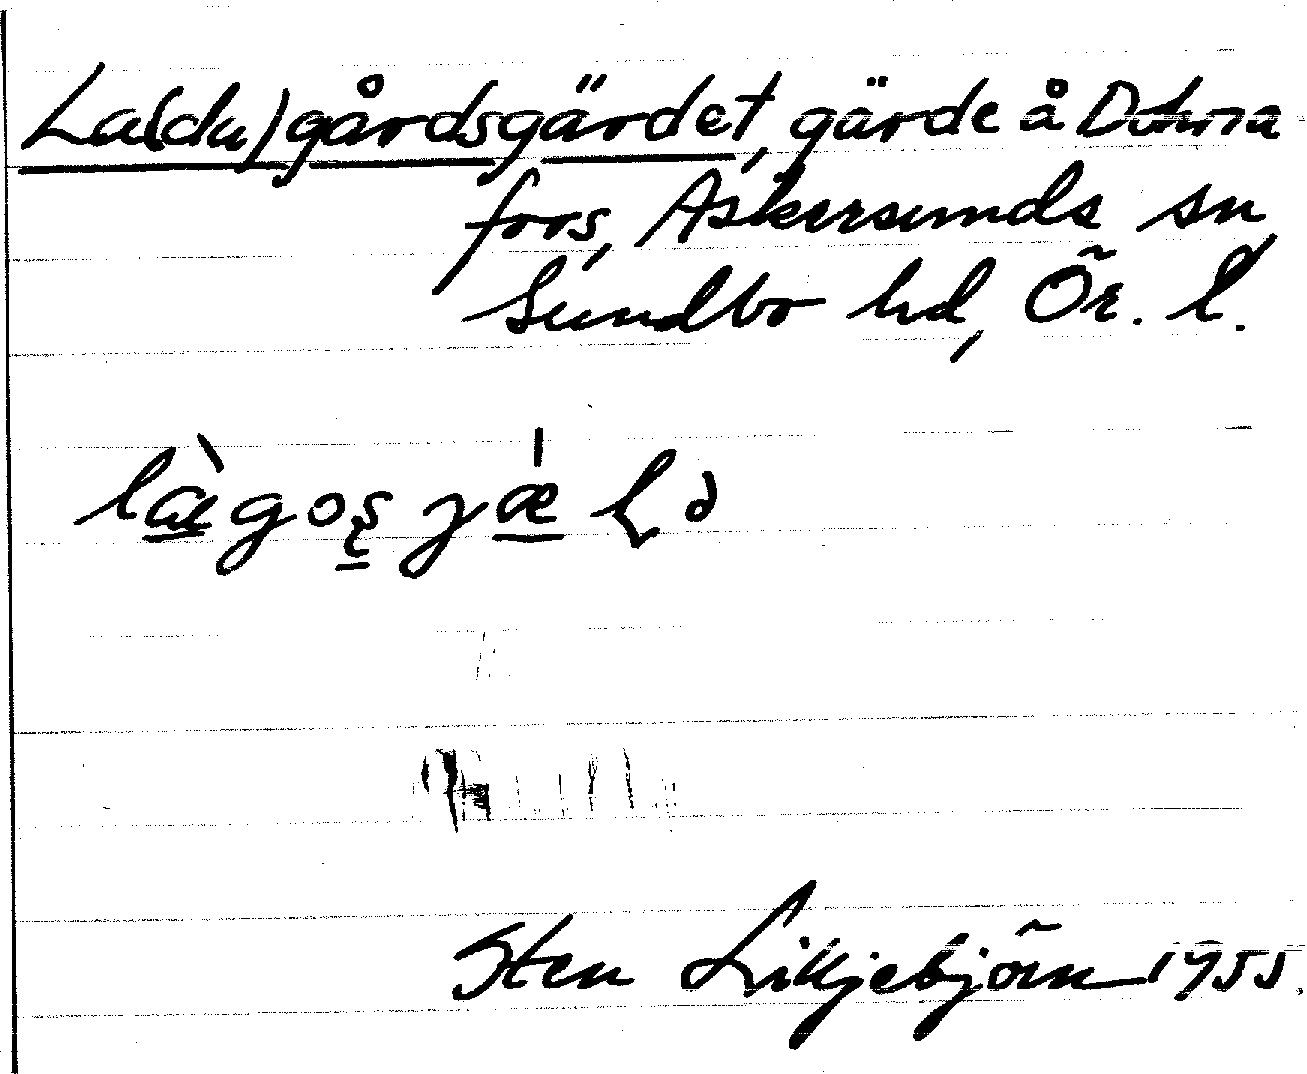 La(du)gårdsgärdet, gärde å Dohna
fors, Askersunds sn
Sundbo hd, Ör. l.
Sten Liljebjörn 1955.